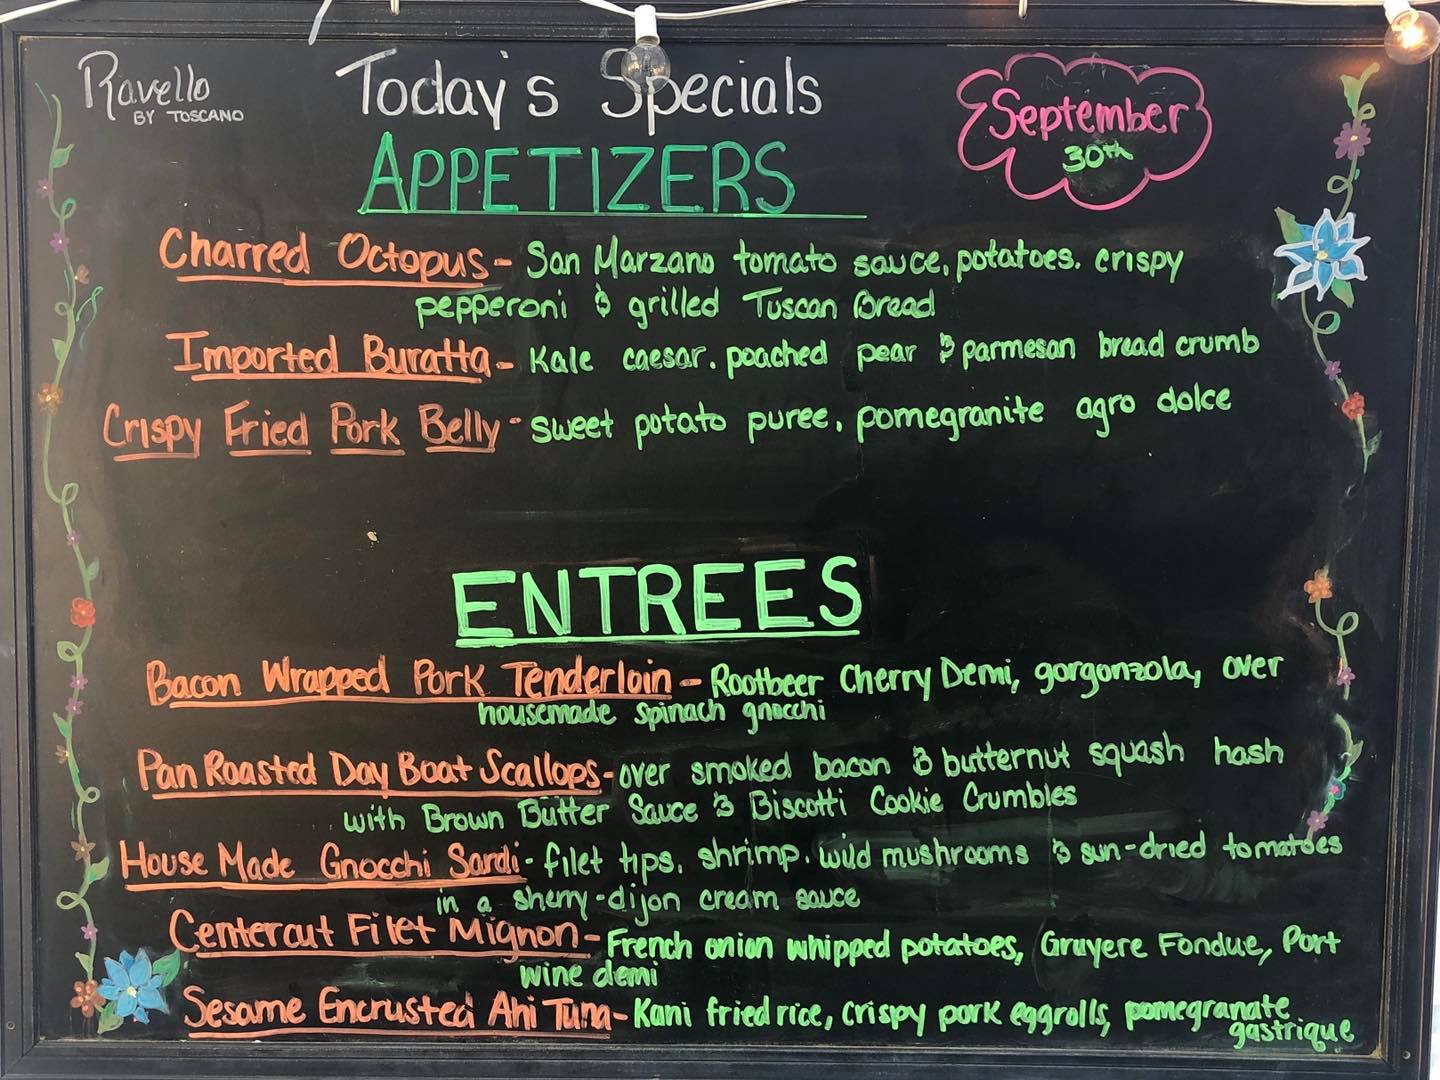 Ravello
BY TOSCANO
Today's Specials
September
30th
APPETIZERS
Charred Octopus - San Marzano tomato sauce, potatoes. crispy
pepperoni & grilled Tuscan Bread
Imported Buratta - Kale caesar. poached pear & parmesan bread crumb
Crispy Fried Pork Belly - sweet potato puree, pomegranite agro dolce
ENTREES
Bacon Wrapped Pork Tenderloin - Rootbeer Cherry Demi, gorgonzola, over
housemade spinach gnocchi
Pan Roasted Day Boat Scallops - over smoked bacon & butternut squash hash
with Brown Butter Sauce & Biscotti Cookie Crumbles
House Made Gnocchi Sardi - filet tips, shrimp, wild mushrooms & sun-dried tomatoes
in a sherry-dijon cream sauce
Centercut Filet Mignon - French onion whipped potatoes, Gruyere Fondue, Port
wine demi
Sesame Encrusted Ahi Tuna - Kani fried rice, crispy pork eggrolls, pomegranate
gastrique